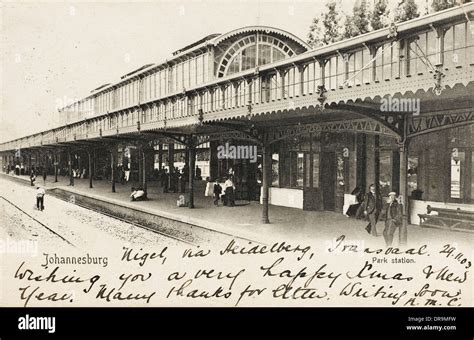 Johannesburg
Park station.
Nigel, via Heidelberg, Transvaal. 29.11.03
Wishing you a very Happy Xmas & New
Year. Many thanks for letter. Writing soon
R.M.C.
alamy
Image ID: DR9MFW
www.alamy.com